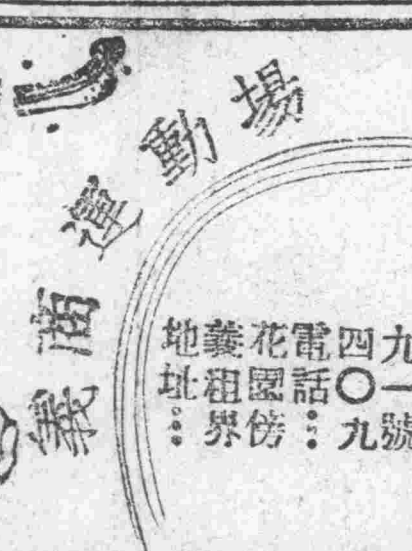 義商運動場
地址：
義租界
花園傍
電話：
四〇九
九一號